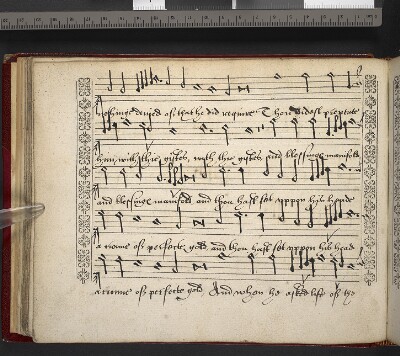 nothinge denied of that he did require Thou didst prevente
him with thie giftes, with thie giftes and blessinge manifold
and blessinge manifold and thou hast set uppon his heade
a crowne of perfecte gold and thou hast set uppon his head
a crowne of perfecte gold And when he asked life of the